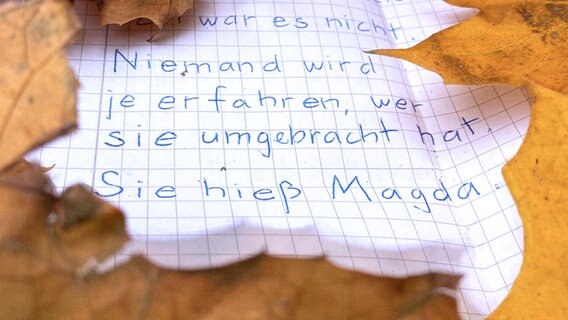 war es nicht.
Niemand wird
je erfahren, wer
sie umgebracht hat.
Sie hieß Magda.